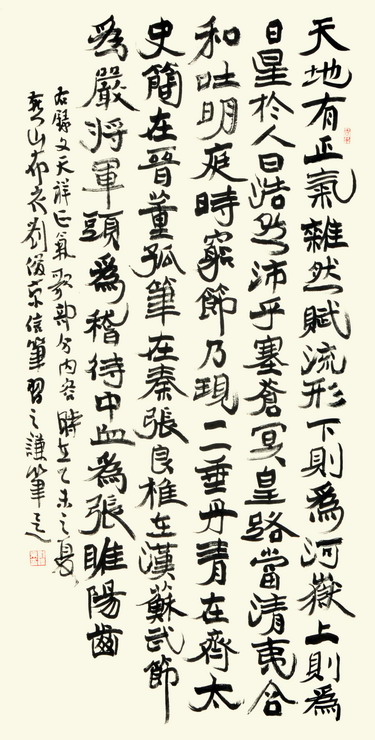 天地有正氣雜然賦流形下則為河嶽上則為
日星於人曰浩然沛乎塞蒼冥皇路當清夷含
和吐明庭時窮節乃現一一垂丹青在齊太
史簡在晉董狐筆在秦張良椎在漢蘇武節
為嚴將軍頭為稽待中血為張睢陽齒
右錄文天祥正氣歌部分內容時在乙未之夏
山布衣劉俊京信筆習之謙筆意